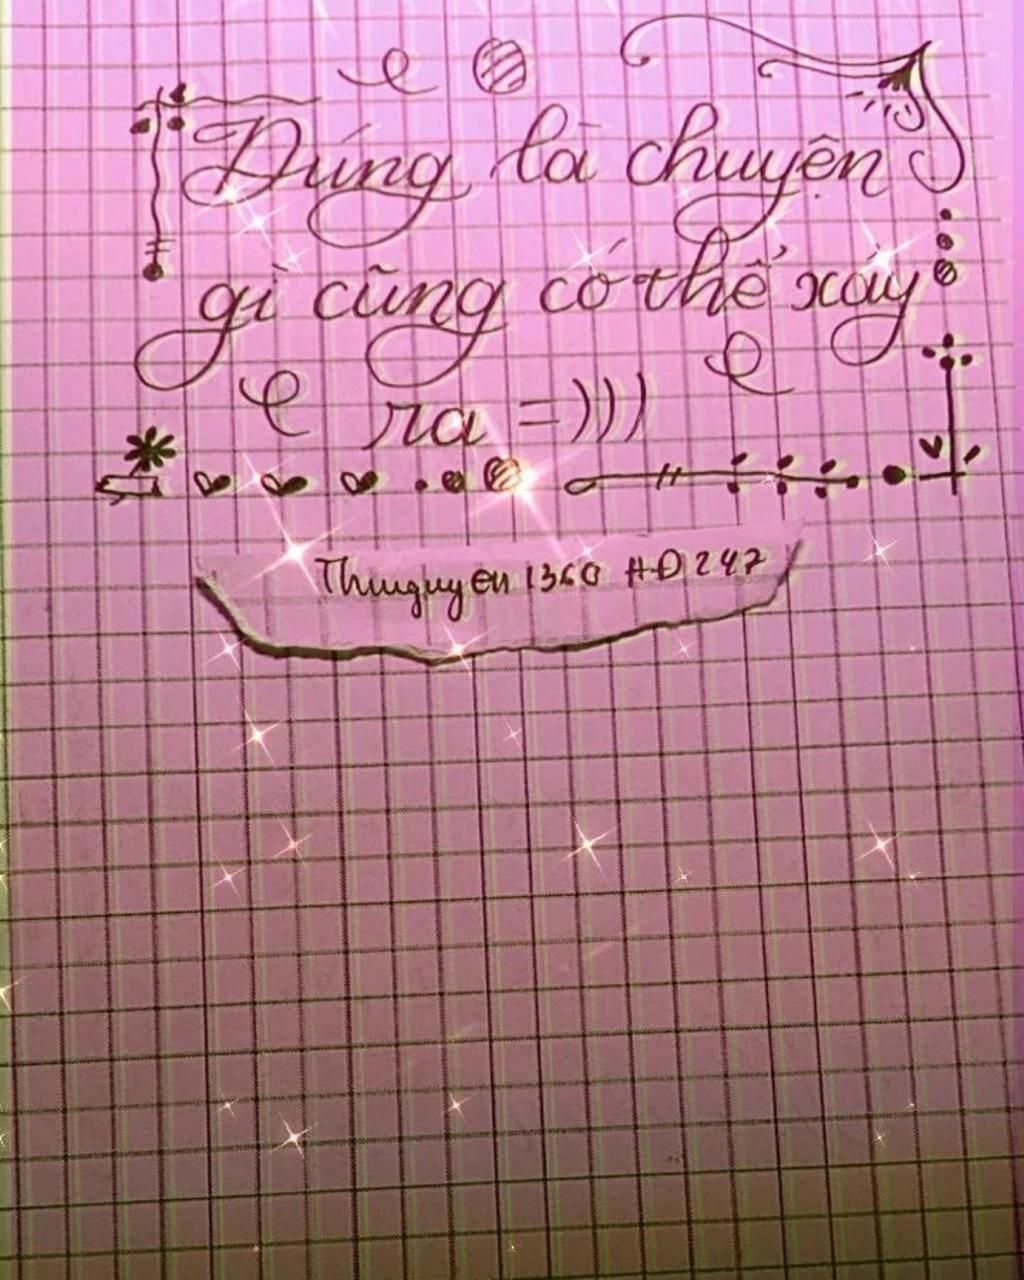 Đúng là chuyện
gì cũng có thể xảy
ra =)))
Thuuguyen 1360 HD247